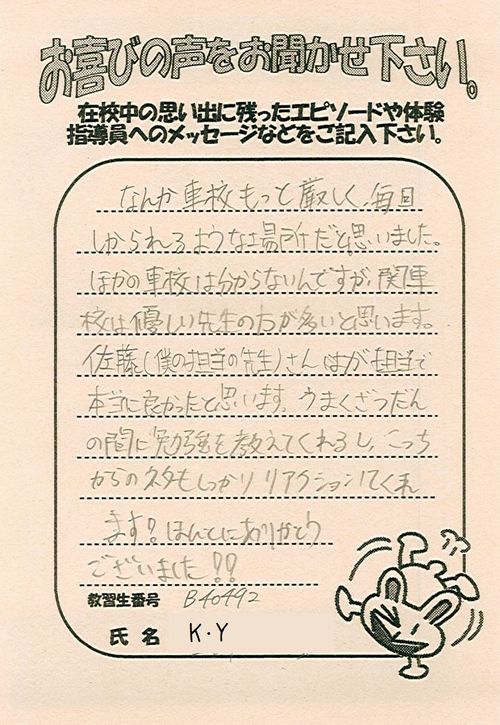 お喜びの声をお聞かせ下さい。
在校中の思い出に残ったエピソードや体験
指導員へのメッセージなどをご記入下さい。
なんか車校もっと厳しく、毎回
しかられるような場所だと思いました。
ほかの車校は分からないんですが、関車
校は優しい先生の方が多いと思います。
佐藤(僕の担当の先生)さんはが担当で
本当に良かったと思います。うまくざつだん
の間に勉強を教えてくれるし、こっち
からのネタもしっかりリアクションしてくれ
ます?ほんとにありがとう
ございました!!
教習生番号 B40492
氏名 K・Y